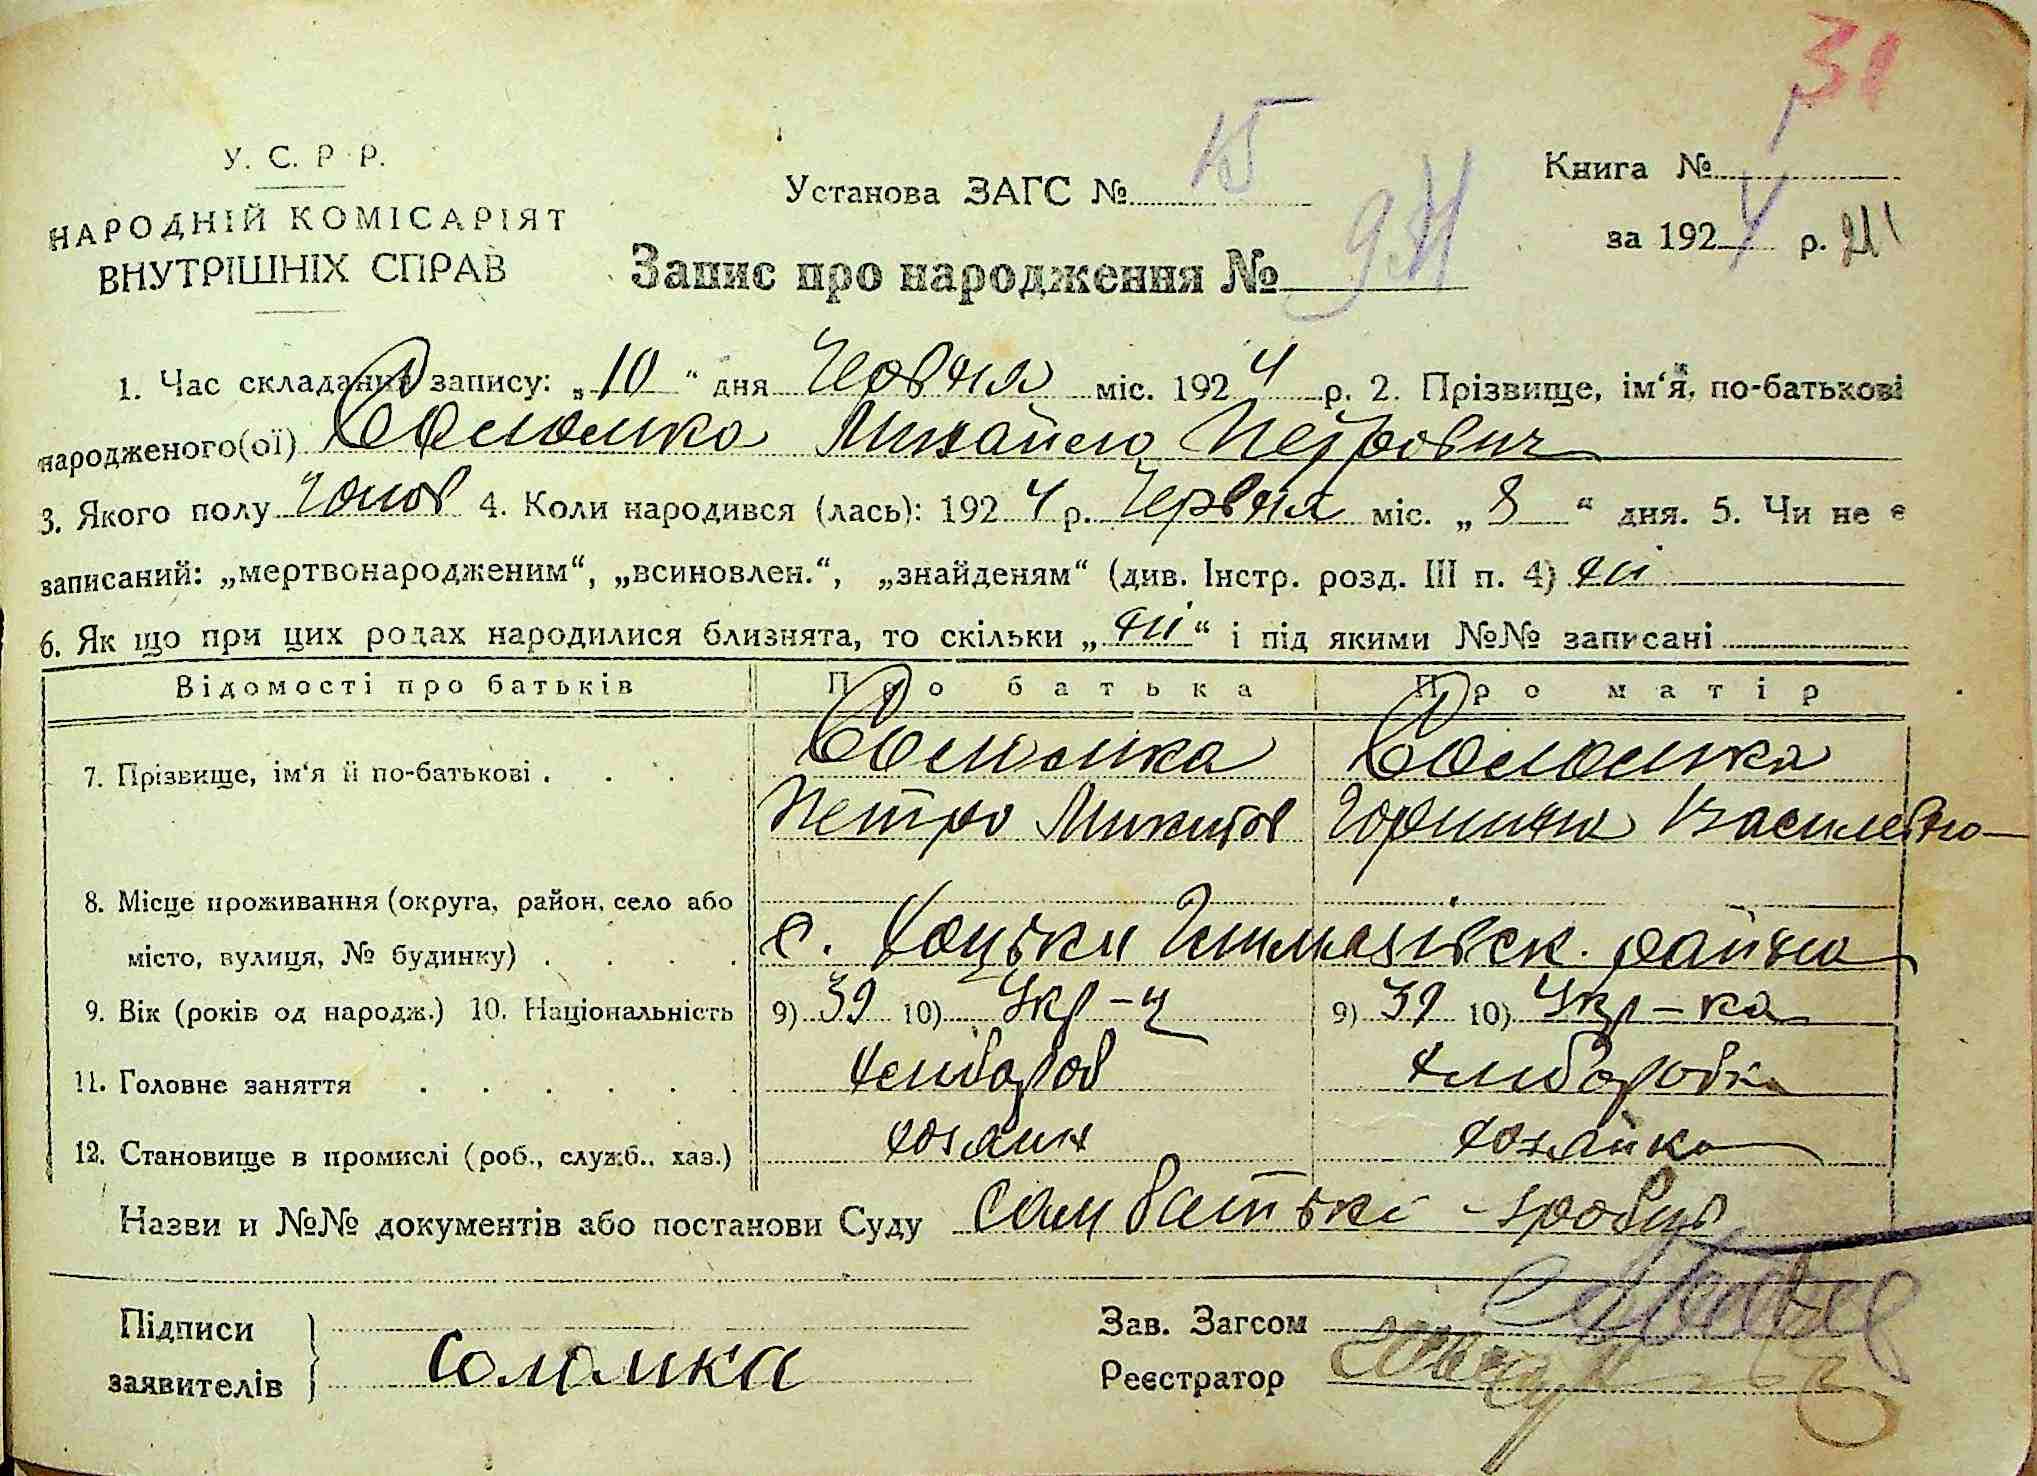 31
У. С. Р. Р.
НАРОДНІЙ КОМІСАРІЯТ
ВНУТРІШНІХ СПРАВ
Установа ЗАГС № 15
Книга № 1
за 1924 р.
Запис про народження №
1. Час складання запису: „10“ дня Червня міс. 1924 р. 2. Прізвище, ім‘я, по-батькові
народженого(ої) Соломка Михайло Петрович
3. Якого полу Чолов 4. Коли народився (лась): 1924 р. Червня міс. „8“ дня. 5. Чи не є
записаний: „мертвонародженим“, „всиновлен.“, „знайденям“ (див. Інстр. розд. III п. 4) ні
6. Як що при цих родах народилися близнята, то скільки „ні“ і під якими №№ записані
Відомості про батьків Про батька Про матір
7. Прізвище, ім‘я й по-батькові . Соломка Соломка
Петро Микитов Горпина Василевна
8. Місце проживання (округа, район, село або
місто, вулиця, № будинку) . с. району
9. Вік (років од народж.) 10. Національність 9) 39 10) Укр-ц 9) 39 10) Укр-ка
11. Головне заняття Хлибороб Хлиборобка
12. Становище в промислі (роб., служб., хаз.) хозяин хозяйка
Назви и №№ документів або постанови Суду
Підписи
заявителів Соломка
Зав. Загсом
Реєстратор